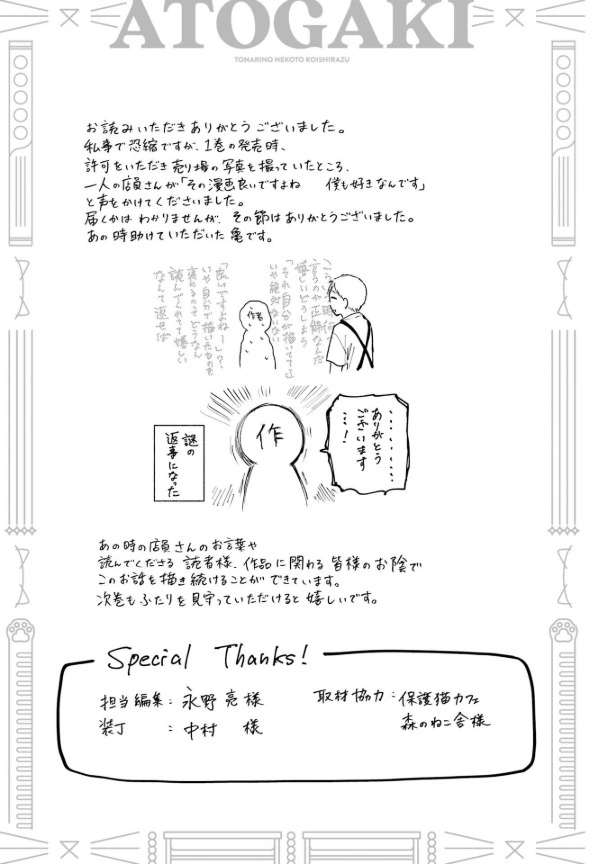 ATOGAKI
TONARINO NEKOTO KOISHIRAZU
お読みいただきありがとうございました。
私事で恐縮ですが、1巻の発売時、
許可をいただき売り場の写真を撮っていたところ、
一人の店員さんが「その漫画良いですよね 僕も好きなんです」
と声をかけてくださいました。
届くかはわかりませんが、その節はありがとうございました。
あの時助けていただいた亀です。
こういう時何て
言うのが正解なんだ
嬉しいどうしよう
「それ自分が描いてて…」
いや絶対ない
作者
「良いですよねー」？
いや自分で描いたものを
褒めるのってどうなん
読んでくれてて嬉しい
なんて返せば
………
ありがとう
ございます
…！
作
謎の
返事になった
あの時の店員さんのお言葉や
読んでくださる読者様、作品に関わる皆様のお陰で
このお話を描き続けることができています。
次巻もふたりを見守っていただけると嬉しいです。
Special Thanks!
担当編集：永野亮様
装丁 ：中村 様
取材協力：保護猫カフェ
森のねこ舎様